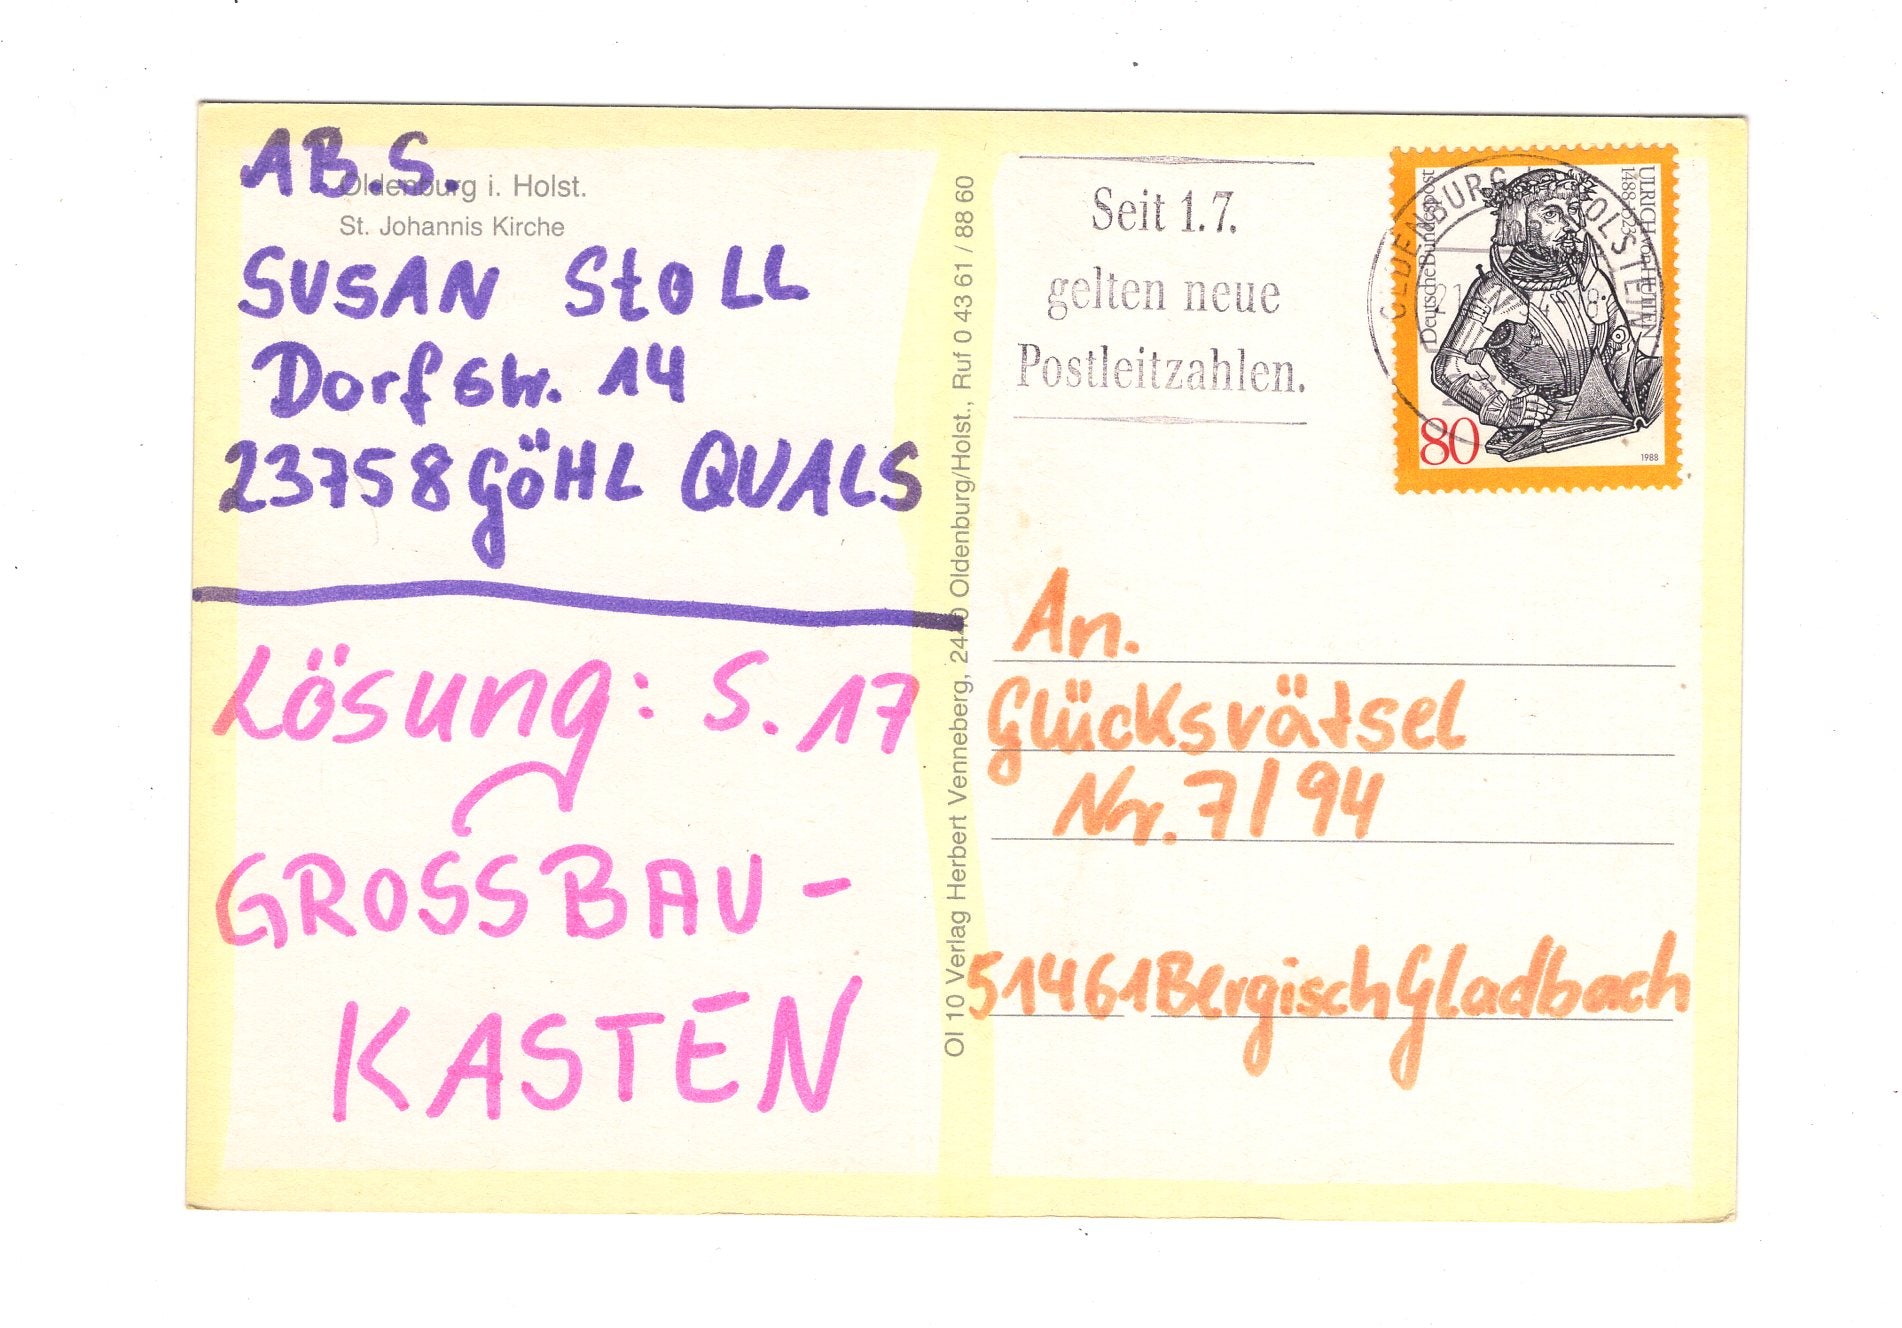 AB.S.
Oldenburg i. Holst.
St. Johannis Kirche
SUSAN StOLL
Dorfstr. 14
23758 GÖHL QUALS
Lösung: S. 17
GROSSBAU-
KASTEN
Ol 10 Verlag Herbert Venneberg, 2440 Oldenburg/Holst., Ruf 0 43 61 / 88 60
Seit 1.7.
gelten neue
Postleitzahlen.
OLDENBURG HOLSTEIN
Deutsche Bundespost
ULRICH von HUTTEN
1488-1523
80
1988
An.
Glücksrätsel
Nr. 7/94
51461 Bergisch Gladbach